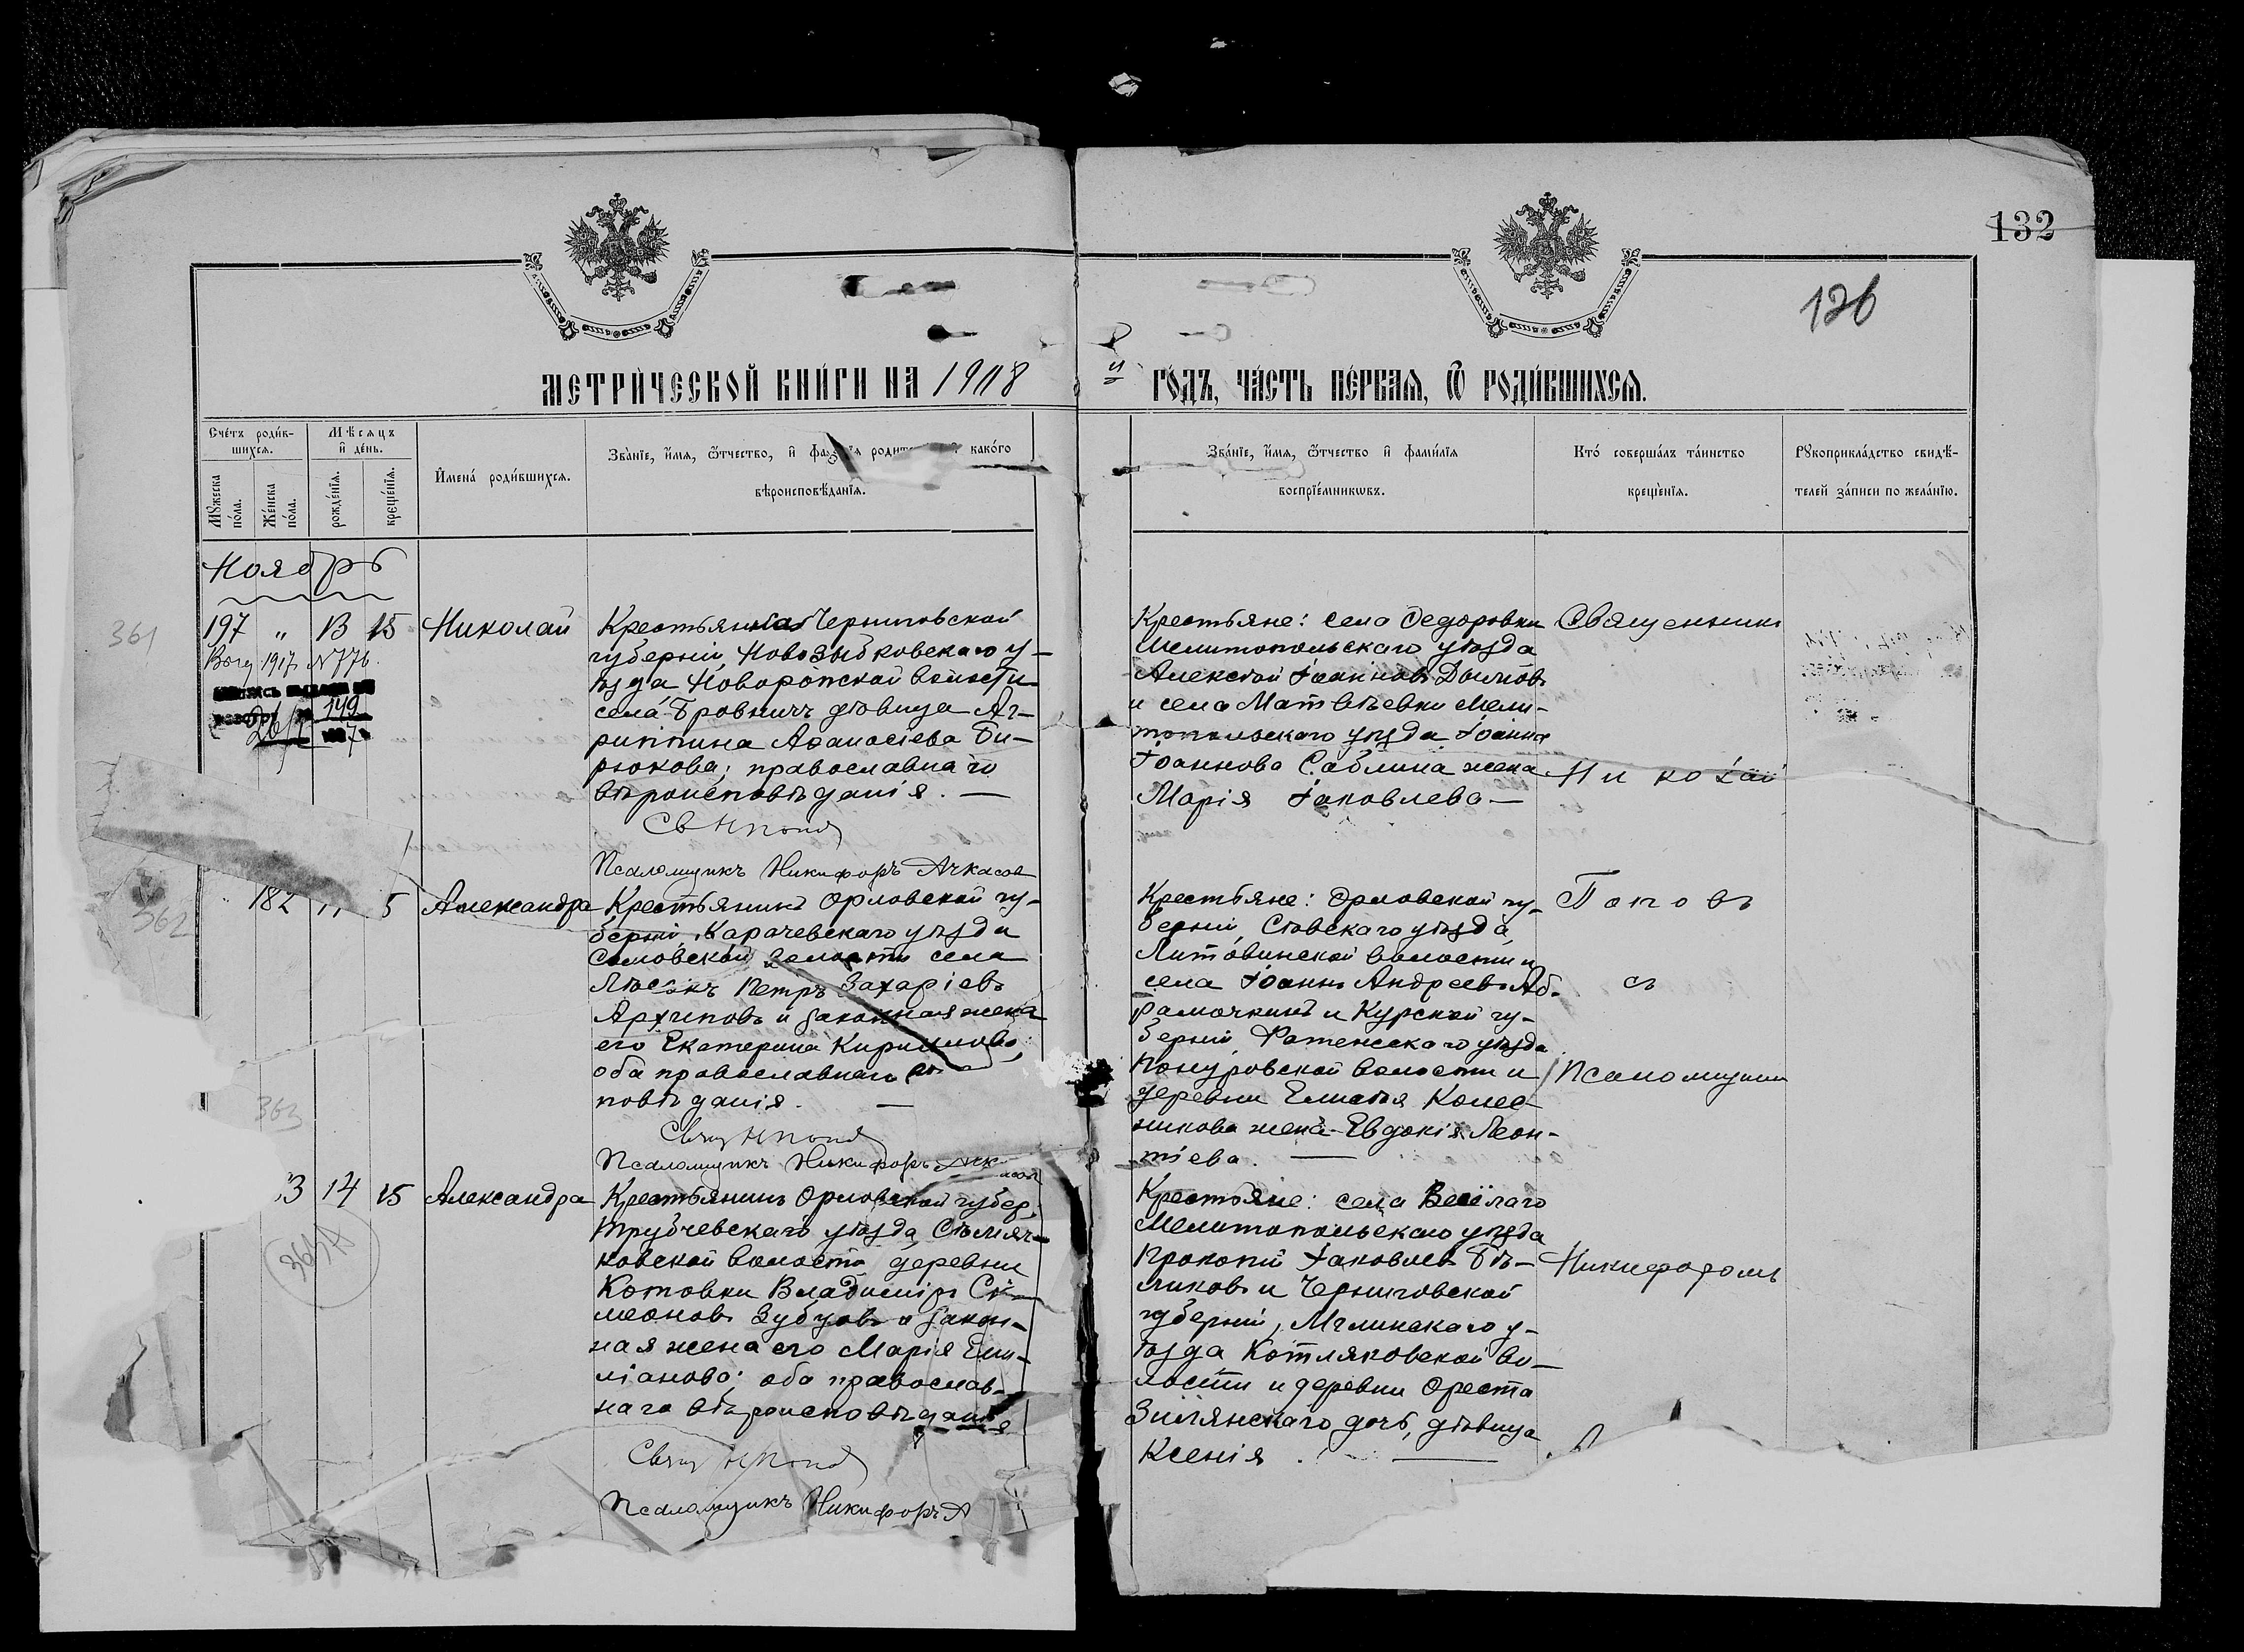 132
126
МЕТРИ́ЧЕСКОЙ КНИ́ГИ НА 1908
й ГО́ДЪ, ЧА́СТЬ ПЕ́РВАѦ, Ѿ РОДИ́ВШИХСѦ.
Сче́тъ роди́в-
шихсѧ.
Мꙋ́жеска по́ла.
Же́нска по́ла.
Мѣ́сѧцъ
и҆ де́нь.
рожде́нїѧ.
креще́нїѧ.
И҆мена̀ роди́вшихсѧ.
Зва́нїе, и҆́мѧ, ѻ҆́тчество, и҆ како́го
вѣроисповѣ́данїѧ.
Зва́нїе, и҆́мѧ, ѻ҆́тчество и҆ фами́лїѧ
воспрїе́мникѡвъ.
Кто̀ соверша́лъ та́инство
креще́нїѧ.
Рꙋкоприкла́дство свидѣ́-
телей за́писи по жела́нїю.
Ноябрь
361
197 " 13 15 Николай
1917 N 776
Крестьянка Черниговской
губерніи, Новозыбковскаго у-
ѣзда Новоропской волости
села Бровничъ дѣвица Аг-
риппина Аѳанасіева Би-
рюкова; православнаго
вѣроисповѣданія. —
Псаломщикъ Никифоръ Ачкасов
Крестьяне: села Ѳедоровки
Мелитопольскаго уѣзда
Алексѣй Іоанновъ Дымовъ
и села Матвѣевки Мели-
топольскаго уѣзда Іоанна
Іоаннова Саблина жена
Марія Іаковлева —
Священникъ
Николай
Поповъ
съ
Псаломщикомъ
Никифоромъ
362
182 11 5 Александра
Крестьянинъ Орловской гу-
берніи, Карачевскаго уѣзда
волости села
Петръ Захаріевъ
Архиповъ и законная жена
его Екатерина Кириллова;
оба православнаго
повѣданія. —
Псаломщикъ Никифоръ Ачкасов
Крестьяне: Орловской гу-
берніи, Сѣвскаго уѣзда,
Литовинской волости и
села Іоаннъ Андреевъ Аб-
рамочкинъ и Курской гу-
берніи Фатежскаго уѣзда
волости и
деревни Елисѣя Колес-
никова жена Евдокія Леон-
тіева. —
363
3 14 15 Александра
Крестьянинъ Орловской губер.
Трубчевскаго уѣзда Сѣмяч-
ковской волости деревни
Котовки Владиміръ Сѵ-
меоновъ Зубцовъ и закон-
ная жена его Марія Еми-
ліанова; оба православ-
наго вѣроисповѣданія
Псаломщикъ Никифоръ А
Крестьяне: села Весёлаго
Мелитопольскаго уѣзда
Прокопій Іаковлевъ Бѣ-
ликовъ и Черниговской
губерніи, Мглинскаго у-
ѣзда Котляковской во-
лости и деревни Ореста
дочь, дѣвица
Ксенія. —